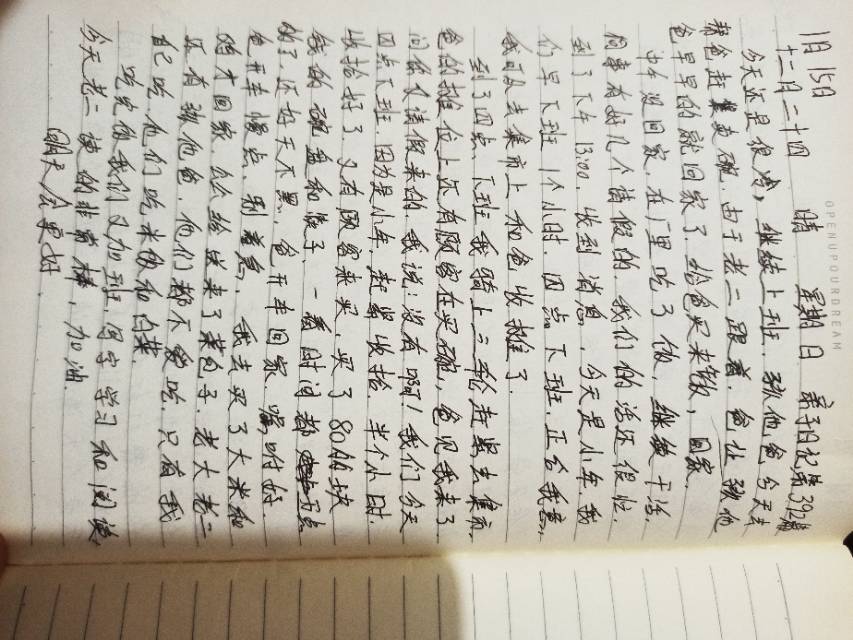 1月15日
十二月二十四 晴 星期日 亲子日记第392篇
今天还是很冷，继续上班，孩他爸今天去
帮爸赶集卖碗。由于老二跟着，爸让孩他
爸早早的就回家了，给爸买来饭，回家
中午没回家，在厂里吃了饭，继续干活，
同事有好几个请假的，我们的活还很忙，
到了下午13:00，收到消息，今天是小年，我
们早下班1个小时，四点下班，正合我意，
我可以去集市上和爸收摊了。
到了四点，下班我骑上三轮赶紧去集市，
爸的摊位上还有顾客在买碗，爸见我来了
问你又请假来的，我说：没有啊！我们今天
四点下班，因为是小年，赶紧收拾，半个小时，
收拾好了，又有顾客来买，买了80的块
钱的碗盘和筷子，一看时间都 5点
了，还好天不黑，爸开车回家，嘱咐好
爸开车慢点，别着急，我去买了大米和
才回家，给 送来了菜包子，老大老二
还有孩他爸，他们都不爱吃，只有我
自己吃，他们吃米饭和白菜。
吃完饭我们又加到班，写字学习和阅读，
今天老二读的非常棒，加油。
明天会更好
OPENUPOURDREAM